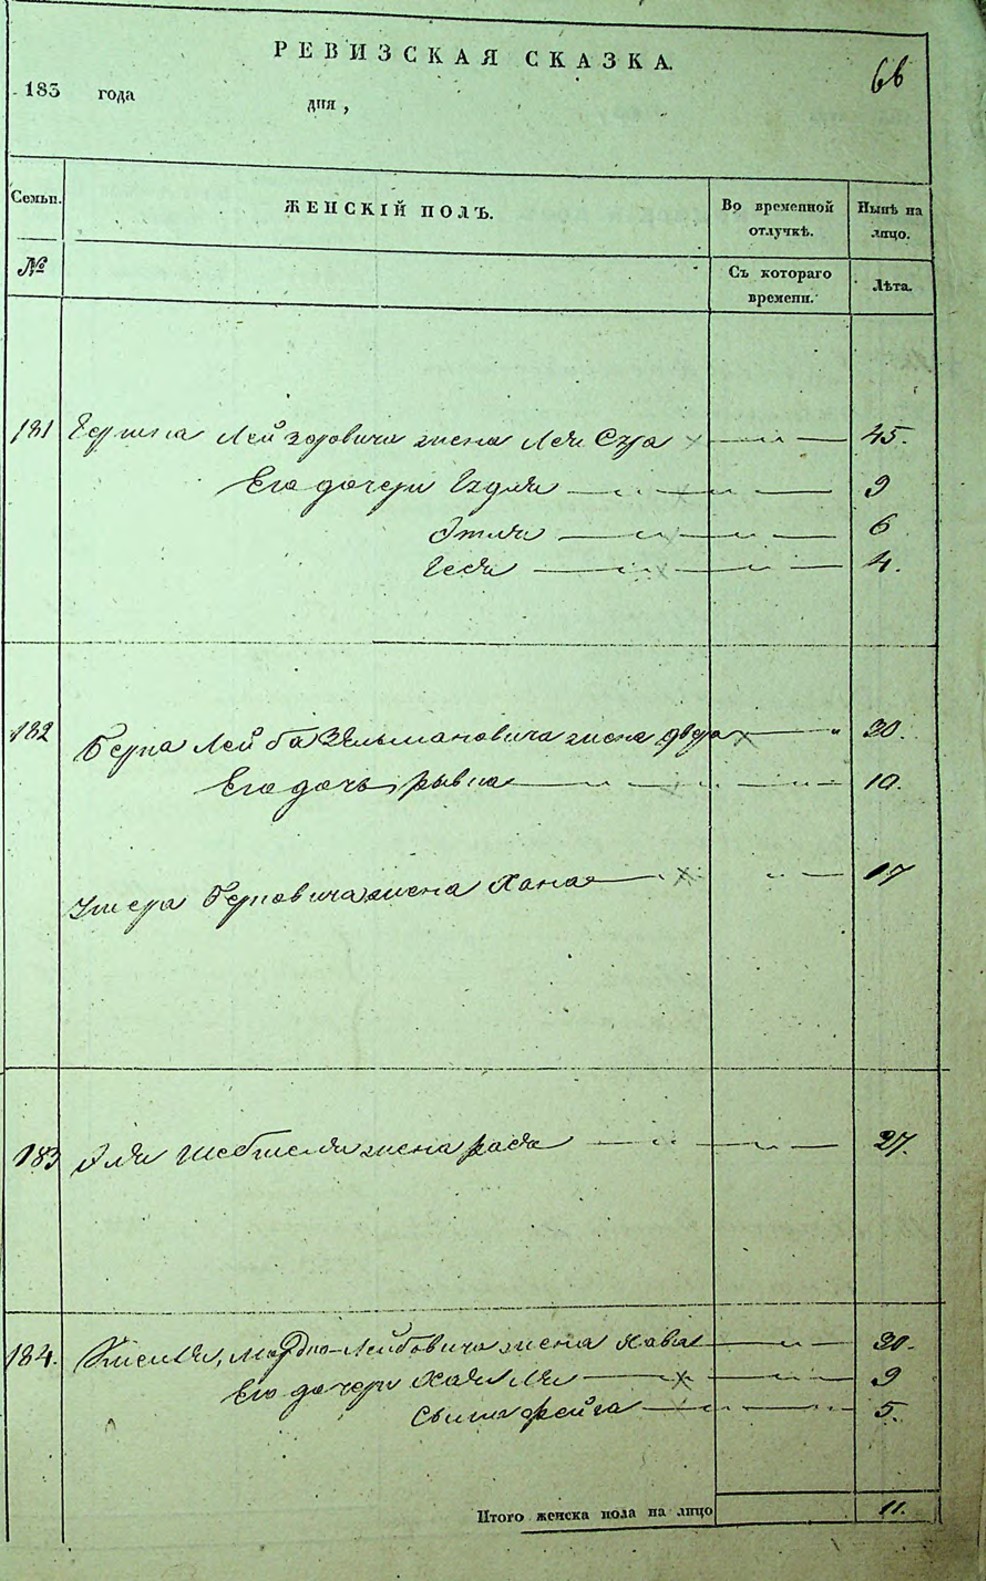 РЕВИЗСКАЯ СКАЗКА.
66
183 года дня,
Семьи. ЖЕНСКІЙ ПОЛЪ. Во временной отлучкѣ. Нынѣ на лицо.
№ Съ котораго времени. Лѣта.
181 Лейзоровича жена Лея Сура 45.
Его дочери 9
Этля 6
Геся 4.
182 Берка Лейба Зельмановича жена Двера 30.
Его дочь Рывка 10.
Берковича жена Хана 17
183 Эля жена Рася 27.
184. Лейбовича жена Хава 30.
Его дочери Хая Ля 9
Фейга 5.
Итого женска пола на лицо 11.